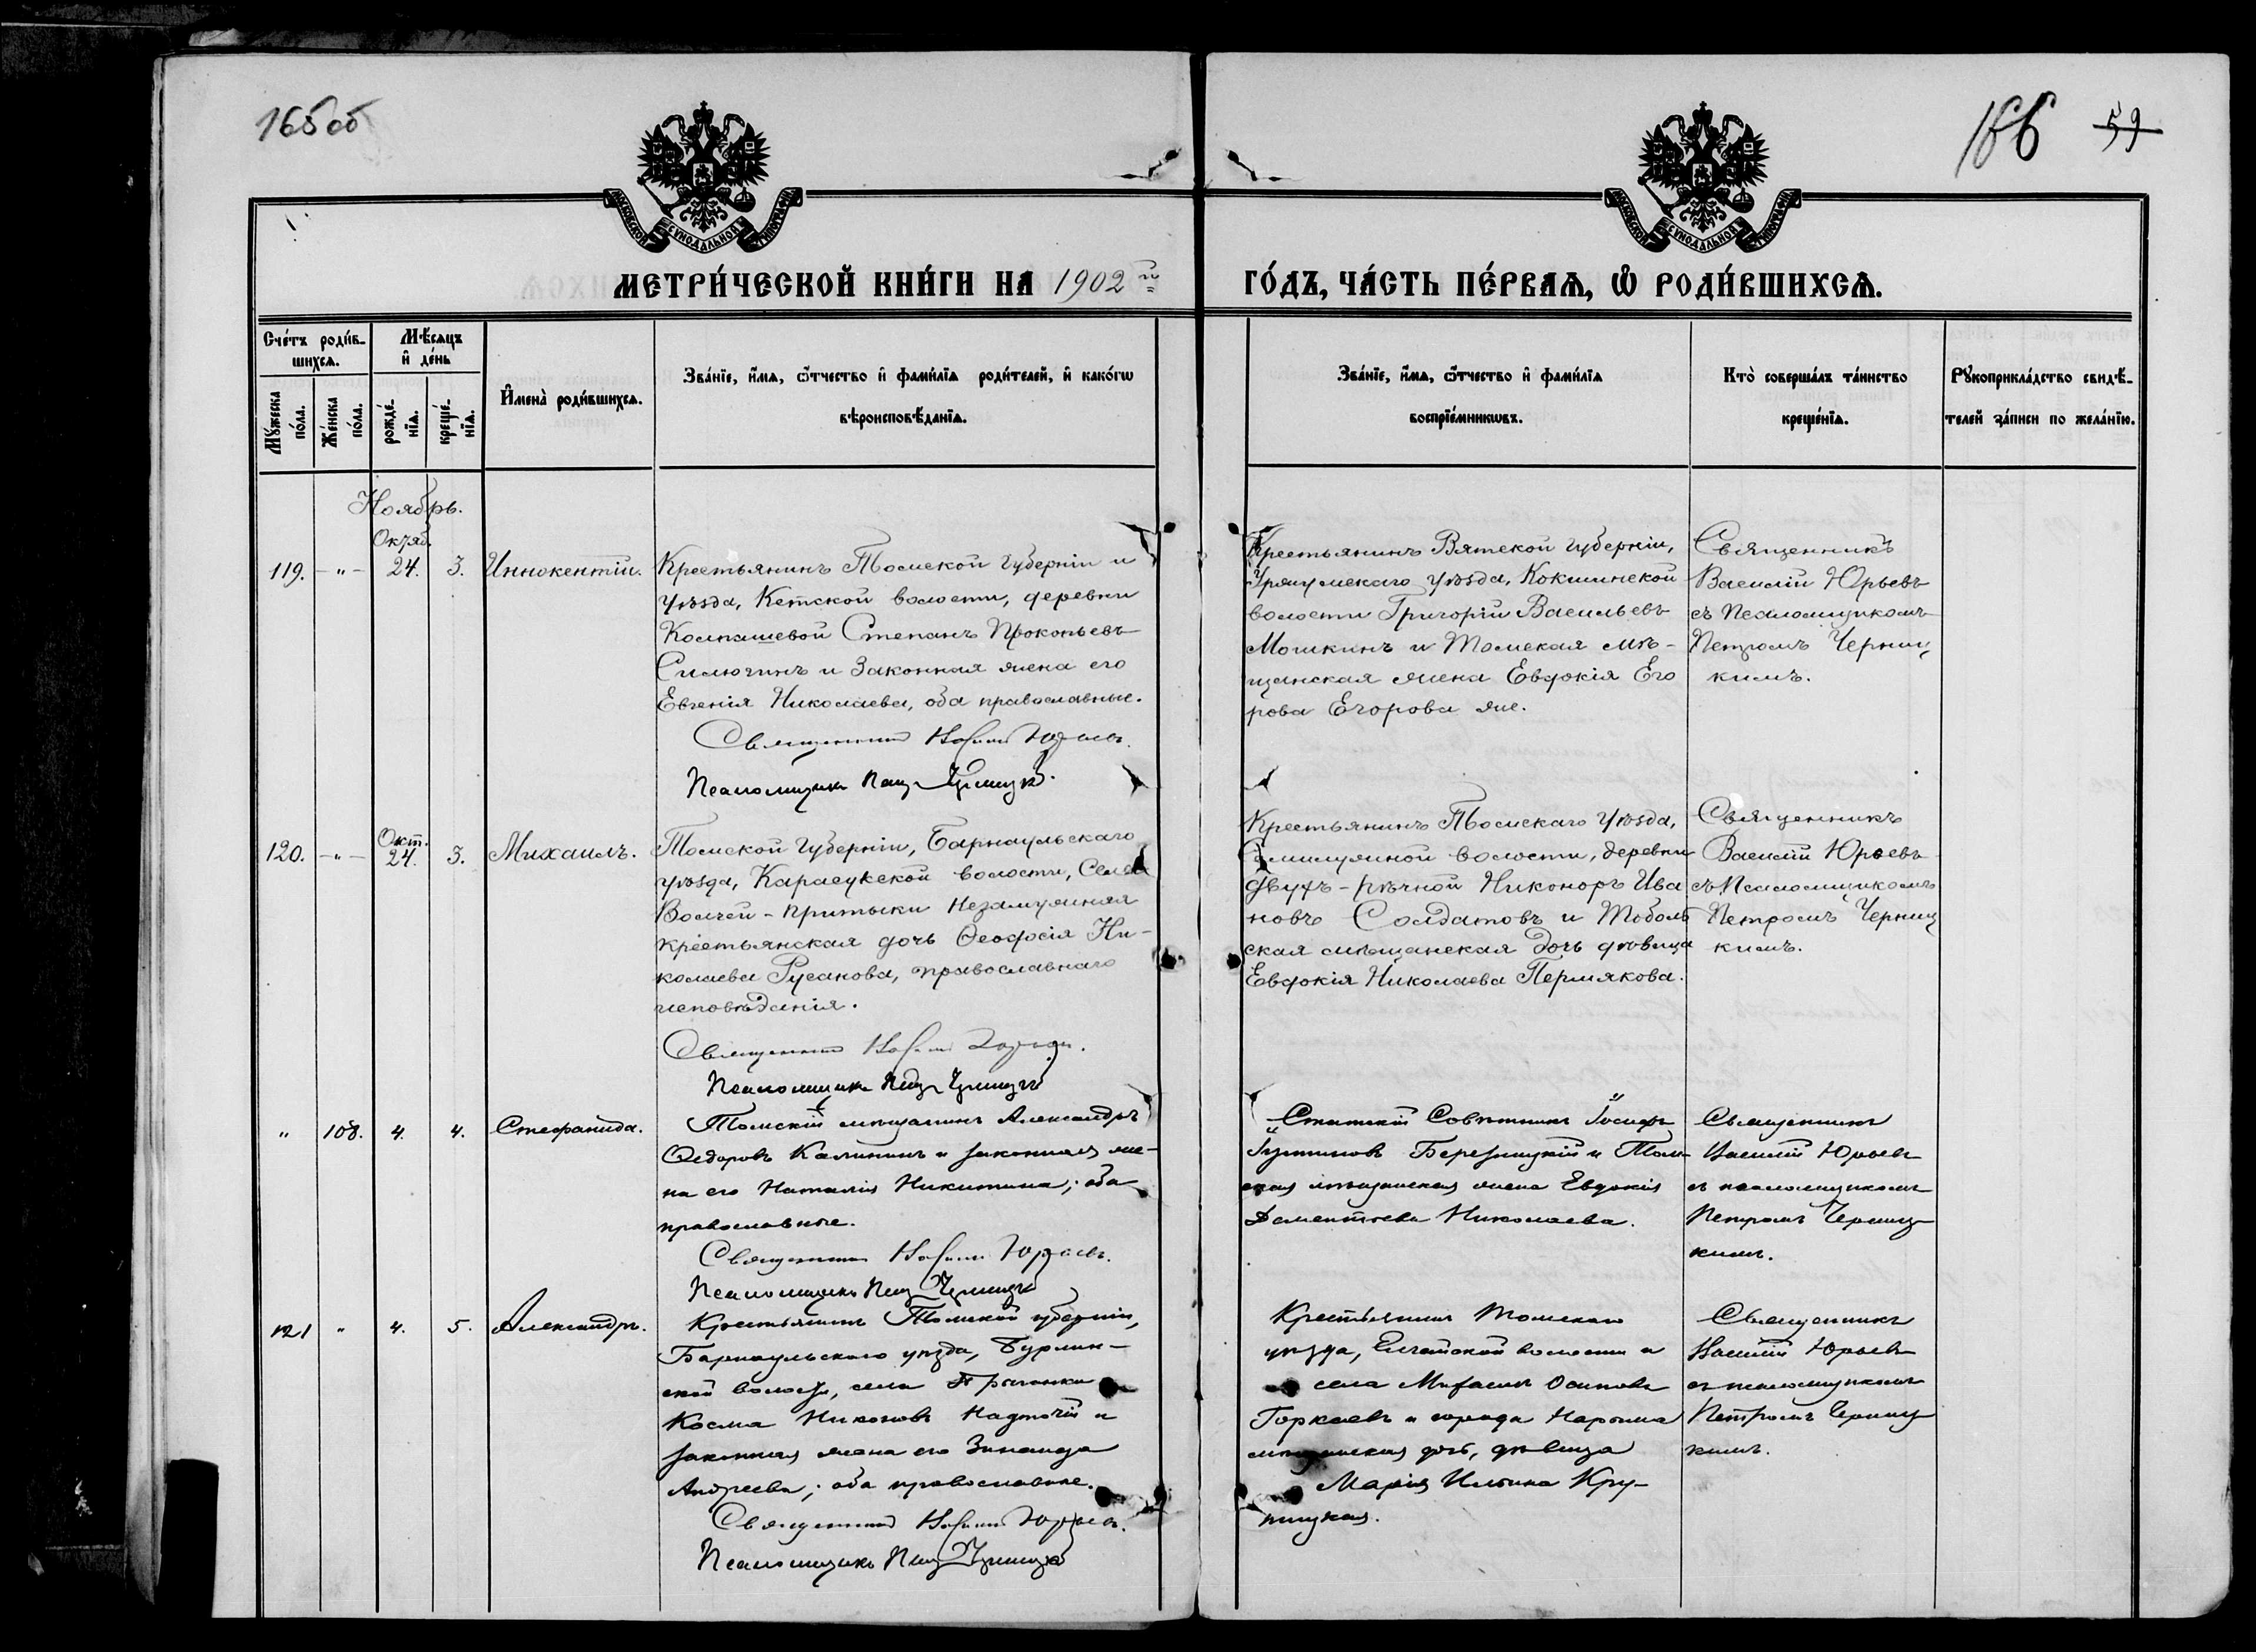 165 об
166 59
МОСКОВСКОЙ СѴНОДАЛЬНОЙ ТИПОГРАФІИ
МОСКОВСКОЙ СѴНОДАЛЬНОЙ ТИПОГРАФІИ
МЕТРИ́ЧЕСКОЙ КНИ́ГИ НА 1902 й
ГО́ДЪ, ЧА́СТЬ ПЕ́РВАѦ, Ѽ РОДИ́ВШИХСѦ.
Сче́тъ роди́в-
шихсѧ.
Мѣ́сѧцъ
и҆ де́нь
Мꙋ́жеска по́ла.
Же́нска по́ла.
рожде́-нїѧ.
креще́-нїѧ.
И҆мена̀ роди́вшихсѧ.
Зва́нїе, и҆́мѧ, ѻ҆́тчество и҆ фами́лїѧ роди́телей, и҆ како́гѡ
вѣроисповѣ́данїѧ.
Зва́нїе, и҆́мѧ, ѻ҆́тчество и҆ фами́лїѧ
воспрїе́мникѡвъ.
Кто̀ соверша́лъ та́инство
креще́нїѧ.
Рꙋкоприкла́дство свидѣ́-
телей за́писи по жела́нїю.
Ноябрь.
Октяб.
119. – " – 24. 3. Иннокентій.
Крестьянинъ Томской губерніи и
уѣзда, Кетской волости, деревни
Колпашевой Степанъ Прокопьевъ
Силюгинъ и законная жена его
Евгенія Николаева, оба православные.
Священникъ Василій Юрьевъ.
Псаломщикъ Петръ Черницкій.
Крестьянинъ Вятской губерніи,
Уржумскаго уѣзда, Кокшинской
волости Григорій Васильевъ
Мошкинъ и Томская мѣ-
щанская жена Евдокія Его
рова Егорова же.
Священникъ
Василій Юрьевъ
съ Псаломщикомъ
Петромъ Черниц
кимъ.
120. – " – Окт. 24. 3. Михаилъ.
Томской губерніи, Барнаульскаго
уѣзда, Карасукской волости, села
Волчей-притыки незамужняя
крестьянская дочь Ѳеодосія Ни-
колаева Русанова, православнаго
исповѣданія.
Священникъ Василій Юрьевъ.
Псаломщикъ Петръ Черницкій
Крестьянинъ Томскаго уѣзда,
Семилужной волости, деревни
Двухъ-рѣчной Никоноръ Ива
новъ Солдатовъ и Тоболь
ская мѣщанская дочь дѣвица
Евдокія Николаева Пермякова.
Священникъ
Василій Юрьевъ
съ Псаломщикомъ
Петромъ Черниц
кимъ.
" 108. 4. 4. Стефанида.
Томскій мѣщанинъ Александръ
Ѳедоровъ Калининъ и законная же-
на его Наталія Никитина; оба
православные.
Священникъ Василій Юрьевъ.
Псаломщикъ Петръ Черницкій
Статскій Совѣтникъ Іосифъ
Іустиновъ Березницкій и Том-
ская мѣщанская жена Евдокія
Дементьева Николаева.
Священникъ
Василій Юрьевъ
съ псаломщикомъ
Петромъ Черниц-
кимъ.
121 " 4. 5. Александръ.
Крестьянинъ Томской губерніи,
Барнаульскаго уѣзда, Бурлин-
ской волости, села
Косма Никоновъ Надточій и
законная жена его Зинаида
Андреева; оба православные.
Священникъ Василій Юрьевъ.
Псаломщикъ Петръ Черницкій
Крестьянинъ Томскаго
уѣзда, Елгайской волости и
села Михаилъ Осиповъ
Горкаевъ и города Нарыма
мѣщанская дочь, дѣвица
Марія Ильина Кру-
пицкая.
Священникъ
Василій Юрьевъ
съ псаломщикомъ
Петромъ Черниц-
кимъ.